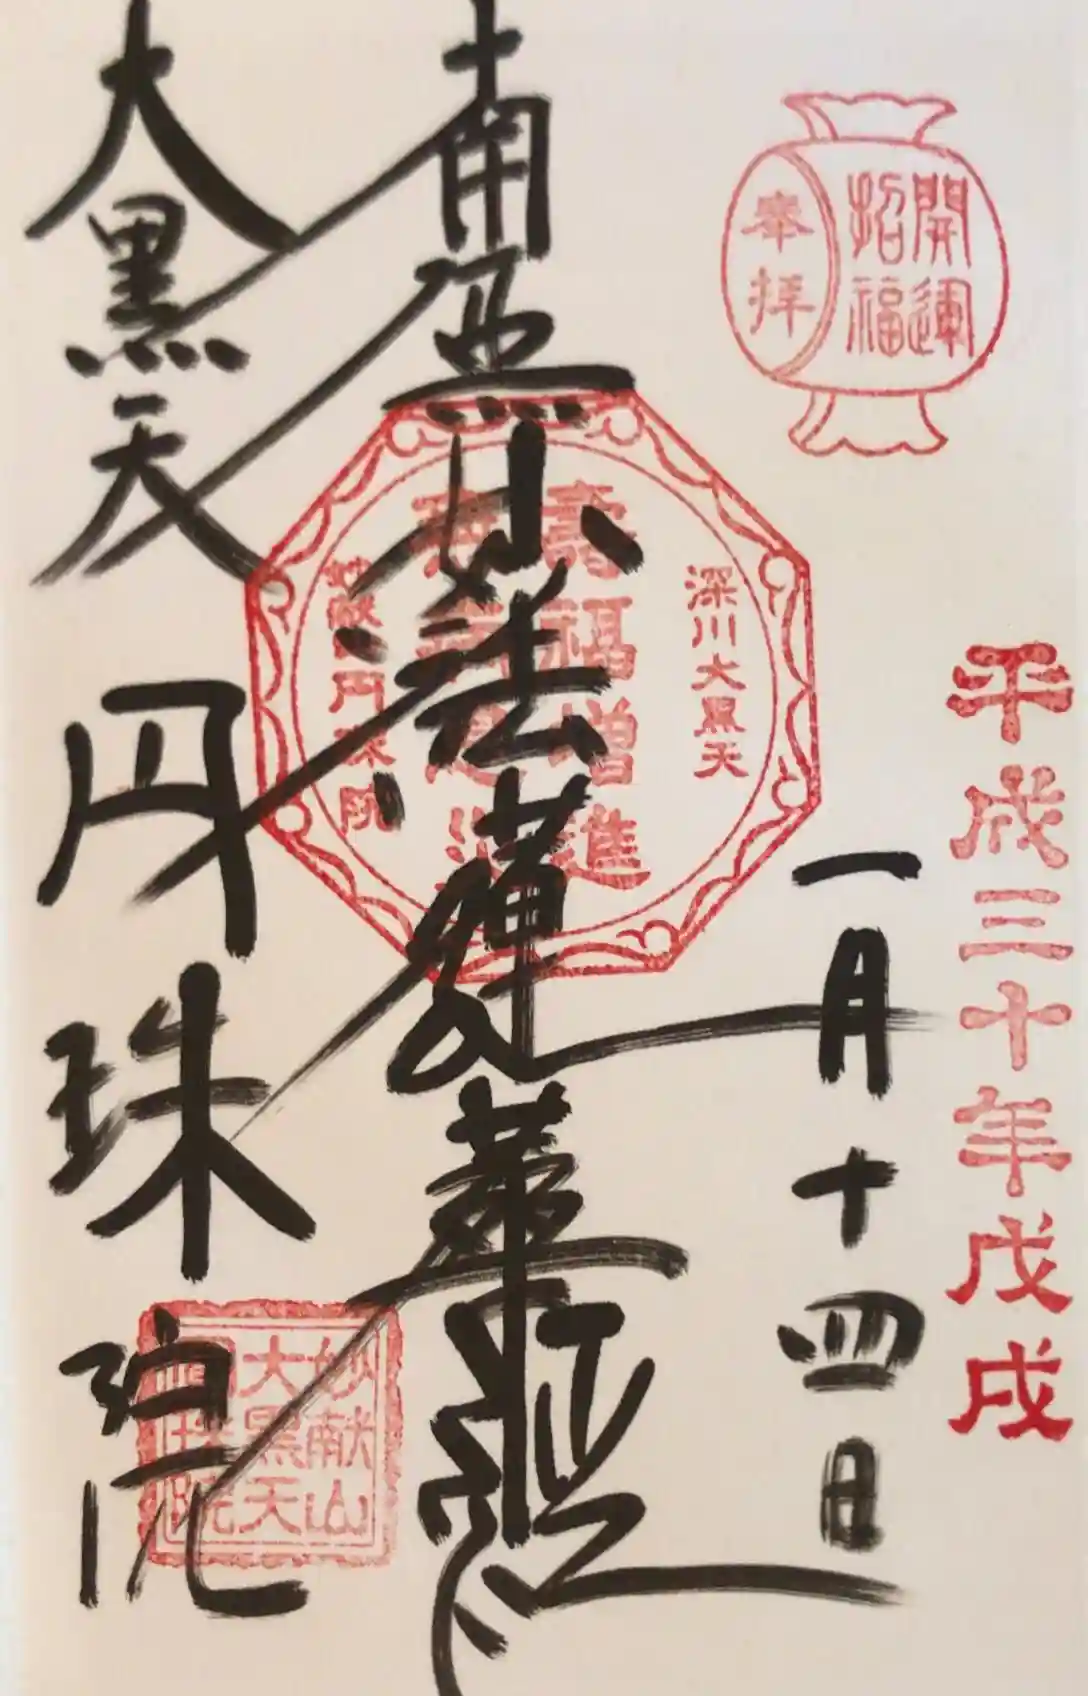 開運
招福
奉拝
平成三十年戊戌
一月十四日
南無妙法蓮華経
深川大黒天
壽福増進
無病息災
妙献山円珠院
大黒天
円珠院
妙献山
大黒天
圓珠院